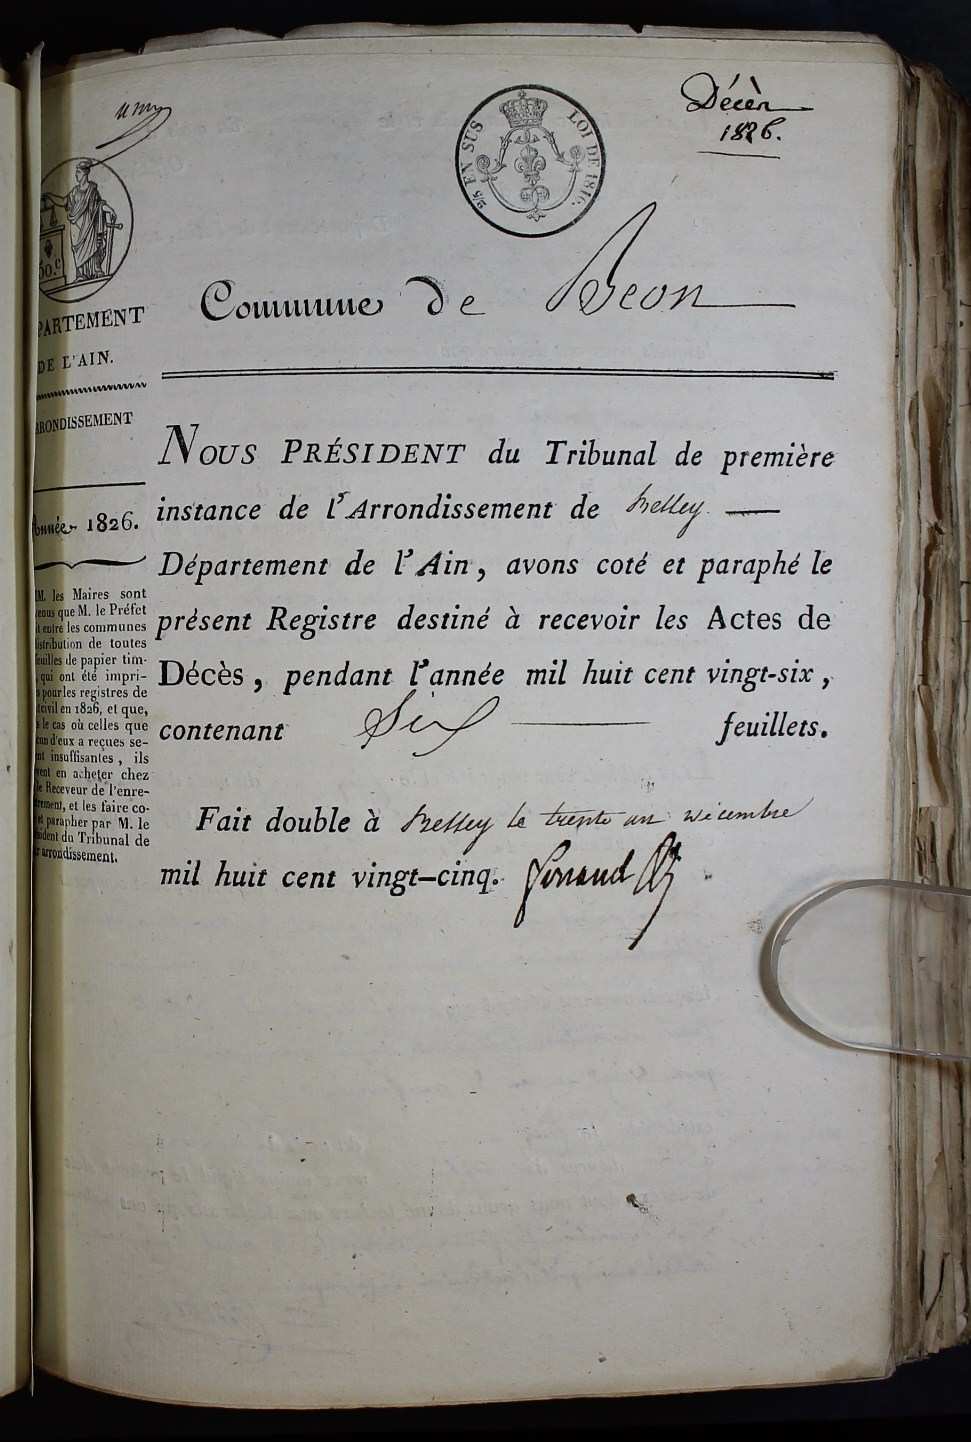 Décès
1826.
2/5 EN SUS
LOI DE 1816.
50.c
Commune de Beon
PARTEMENT
DE L'AIN.
RRONDISSEMENT
Année 1826.
M. les Maires sont
enus que M. le Préfet
t entre les communes
istribution de toutes
euilles de papier tim-
qui ont été impri-
pour les registres de
civil en 1826, et que,
s le cas où celles que
cun d'eux a reçues se-
nt insuffisantes, ils
vent en acheter chez
le Receveur de l'enre-
rement, et les faire co-
et parapher par M. le
sident du Tribunal de
r arrondissement.
NOUS PRÉSIDENT du Tribunal de première
instance de l'Arrondissement de Belley
Département de l'Ain, avons coté et paraphé le
présent Registre destiné à recevoir les Actes de
Décès, pendant l'année mil huit cent vingt-six,
contenant Six feuillets.
Fait double à Belley le trente un décembre
mil huit cent vingt-cinq.